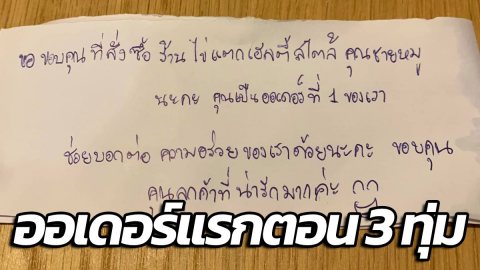 ขอขอบคุณ ที่สั่งซื้อ ร้าน ไข่แตกเฮลตี้สไตล์ คุณชายหมู
นะคะ คุณเป็นออเดอร์ที่ 1 ของเรา
ช่วยบอกต่อ ความอร่อย ของเราด้วยนะคะ ขอบคุณ
คุณลูกค้าที่น่ารักมากค่ะ
ออเดอร์แรกตอน 3 ทุ่ม